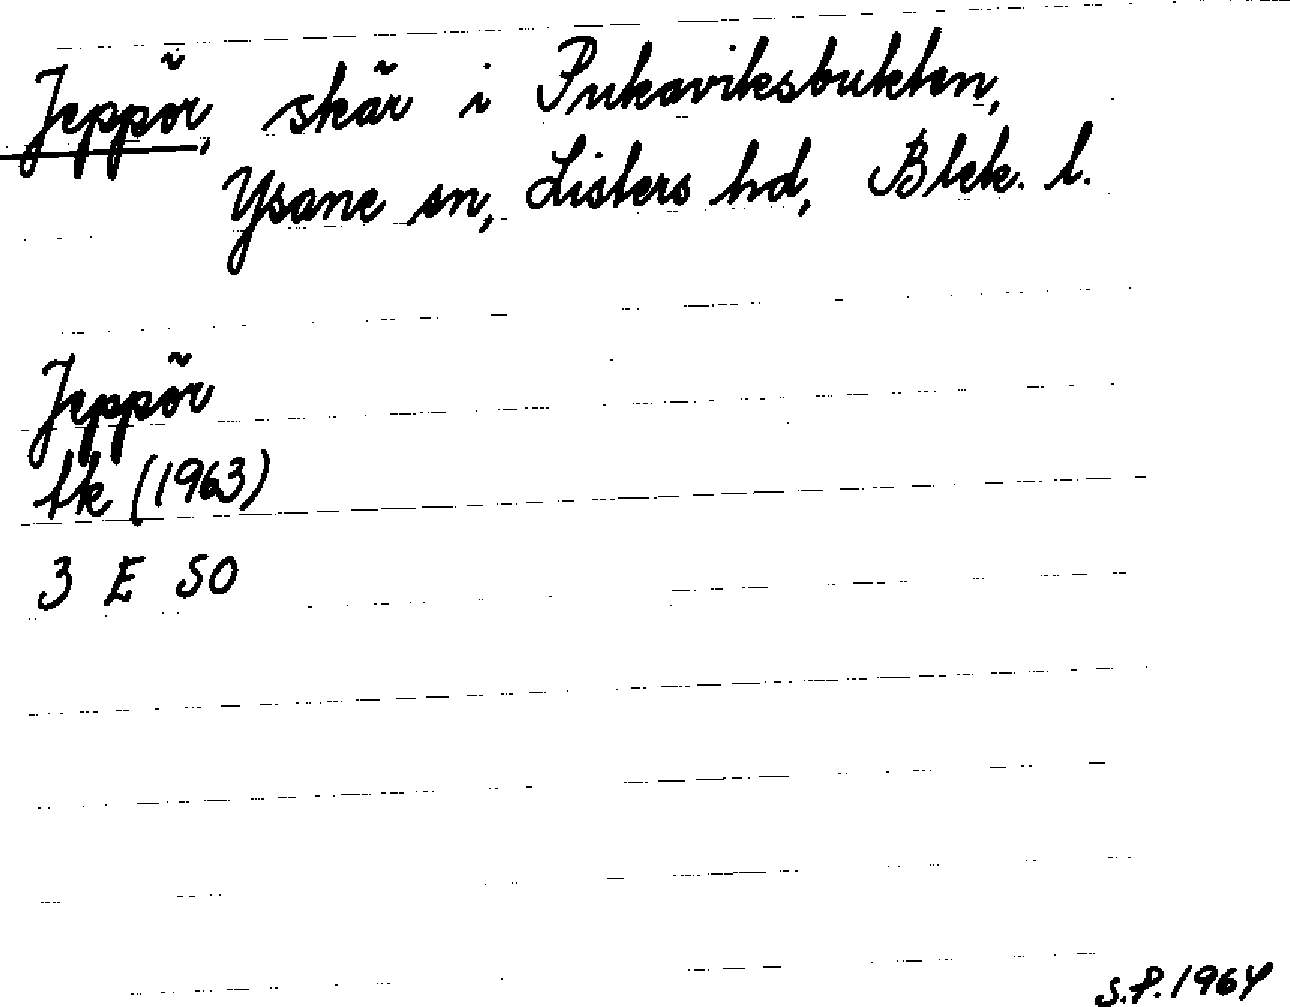 Jeppör, skär i Pukaviksbukten,
Ysane sn, Listers hd, Blek. l.
Jeppör
tk (1963)
3 E SO
S.P. 1964